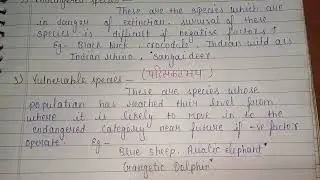 Endangered species -
These are the species which are
in danger of extinction. survival of these
species is difficult if negative factors ↑
Eg - Black buck, crocodile, Indian wild ass
Indian rhino, Sangai deer.
3) Vulnerable species -
These are species whose
population has reached their level from
where it is likely to move in to the
endangered category near future if -ve factor
operate. Eg -
Blue sheep, Asiatic elephant
Gangetic Dolphin